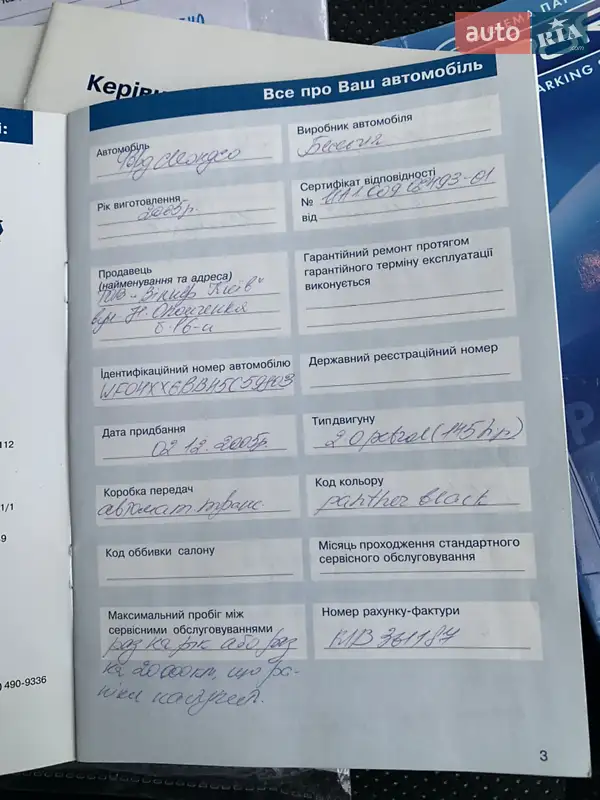 auto
RIA
.com
ARKING
Керівн
Все про Ваш автомобіль
Автомобіль
Форд Мондео
Виробник автомобіля
Бельгія
Рік виготовлення
2005р.
Сертифікат відповідності
№
від
Продавець
(найменування та адреса)
"Київ"
вул.
Гарантійний ремонт протягом
гарантійного терміну експлуатації
виконується
Ідентифікаційний номер автомобілю
Державний реєстраційний номер
Дата придбання
02.12.2005р.
Тип двигуну
2.0 petrol (145 h.p)
Коробка передач
автомат. транс.
Код кольору
panther black
Код оббивки салону
Місяць проходження стандартного
сервісного обслуговування
Максимальний пробіг між
сервісними обслуговуваннями
раз на рік або раз
на 20000км, що ра-
ніше наступит.
Номер рахунку-фактури
КІВ 361187
112
1/1
9
) 490-9336
3